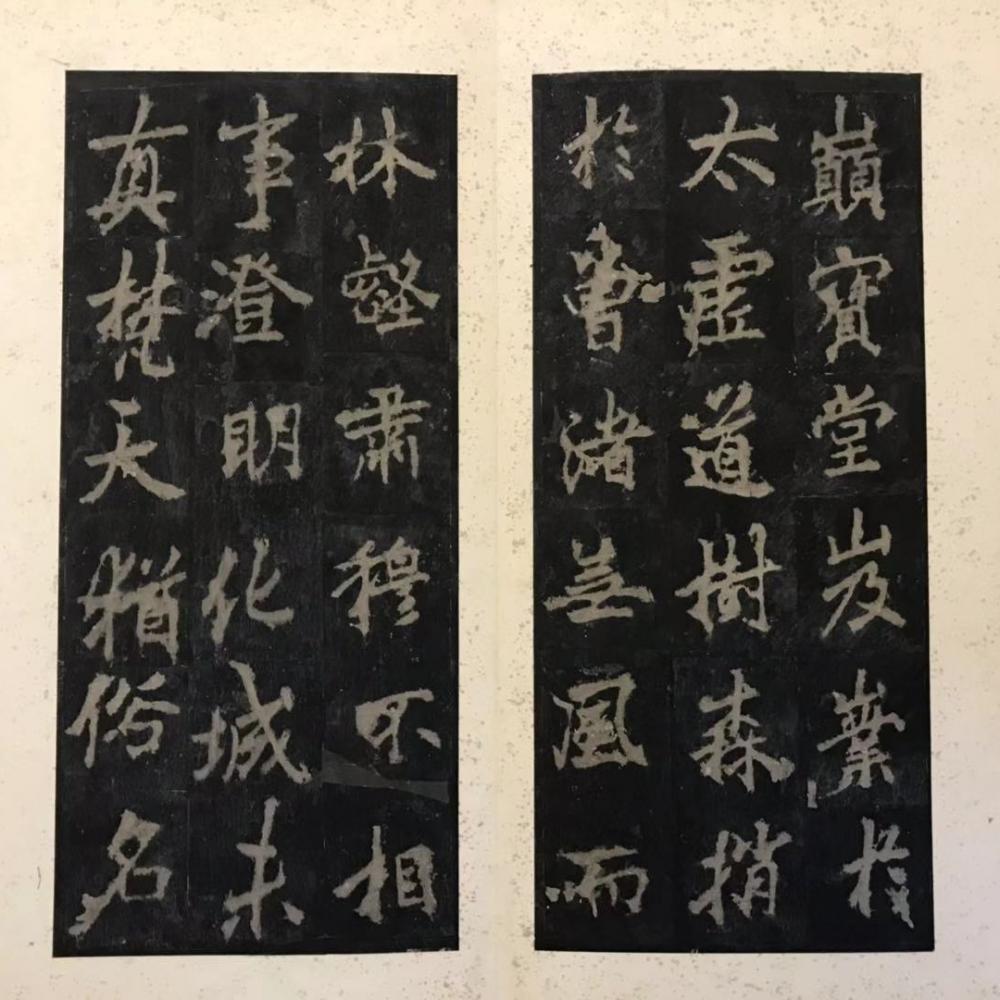 巔寶堂岌嶪於
太虛道樹森梢
於曾渚無風而
林壑肅穆不相
事澄明化城未
真梵天猶俗名